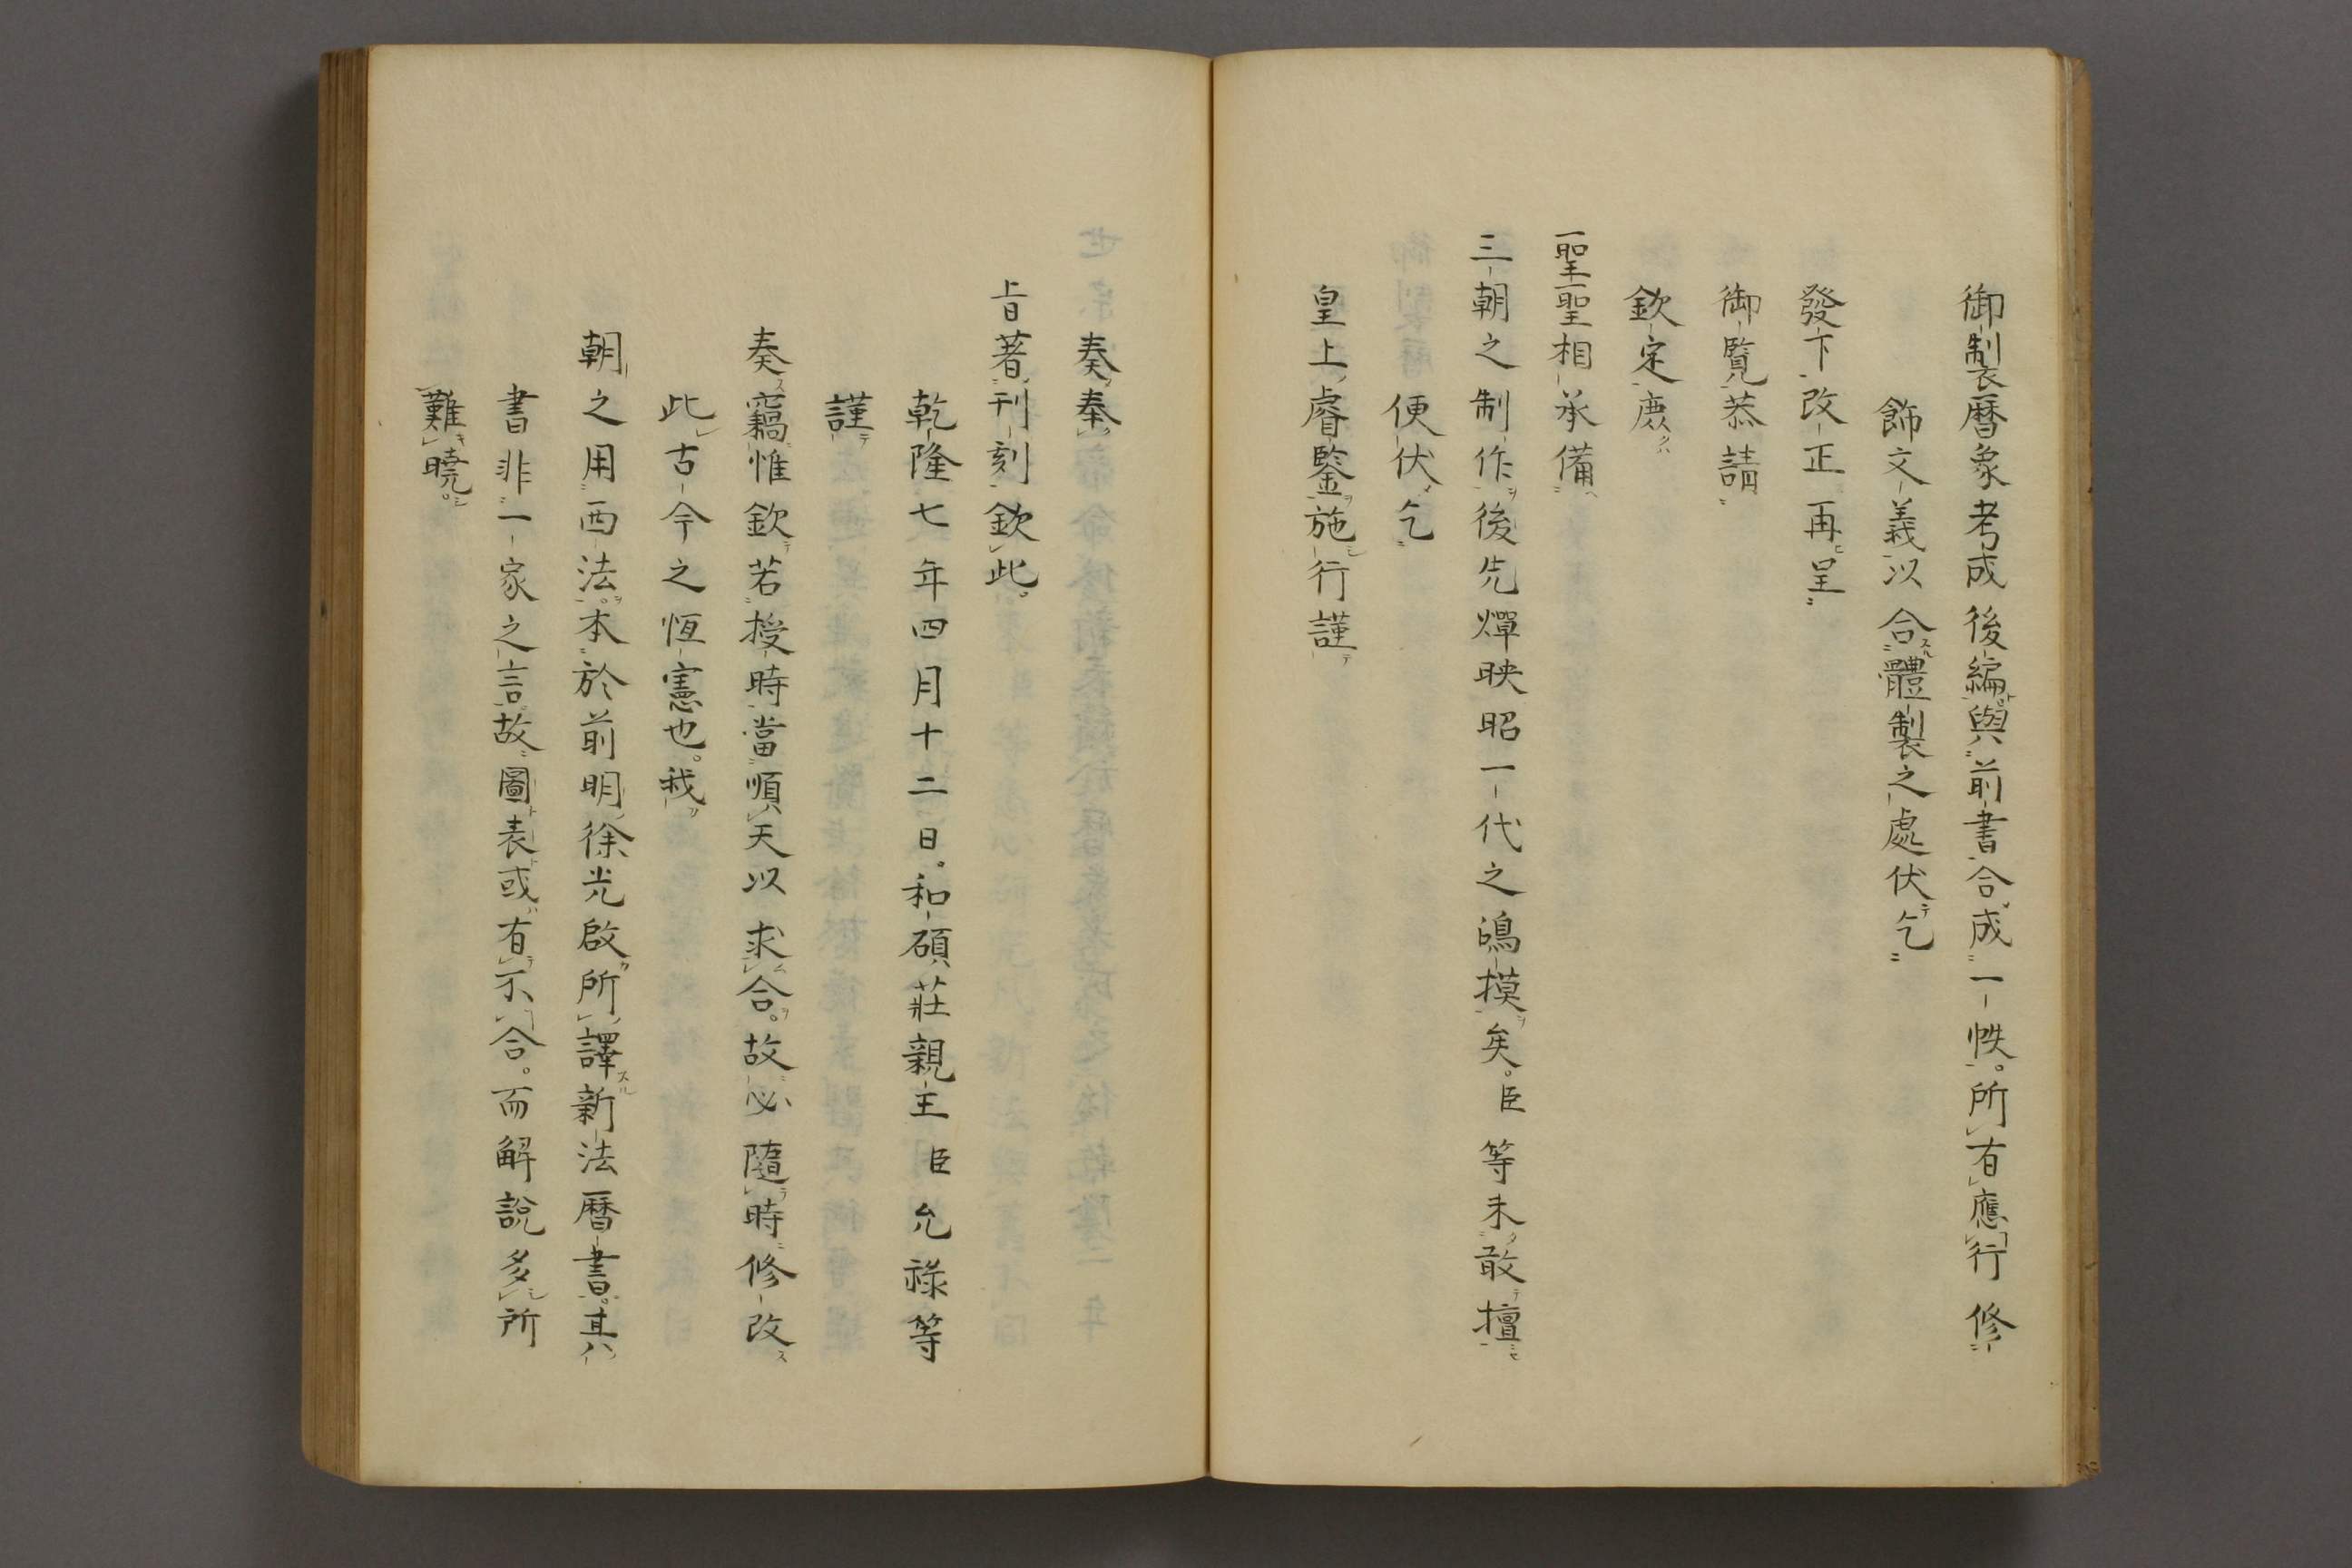 御製暦象考成後編與前書合成一帙。所有應行修
飾文義以合體製之處伏乞
發下改正再呈
御覽恭請
欽定庶
聖聖相承備
三朝之制作後先燀映昭一代之鴻摸矣。臣等未敢擅
便伏乞
皇上睿鑒施行謹
奏奉
旨著刊刻欽此
乾隆七年四月十二日。和碩莊親王臣允祿等
謹
奏竊惟欽若授時當順天以求合。故必隨時修改
此古今之恆憲也。我
朝之用西法。本於前明徐光啟所譯新法暦書。其
書非一家之言。故圖表或有不合。而解說多所
難曉。